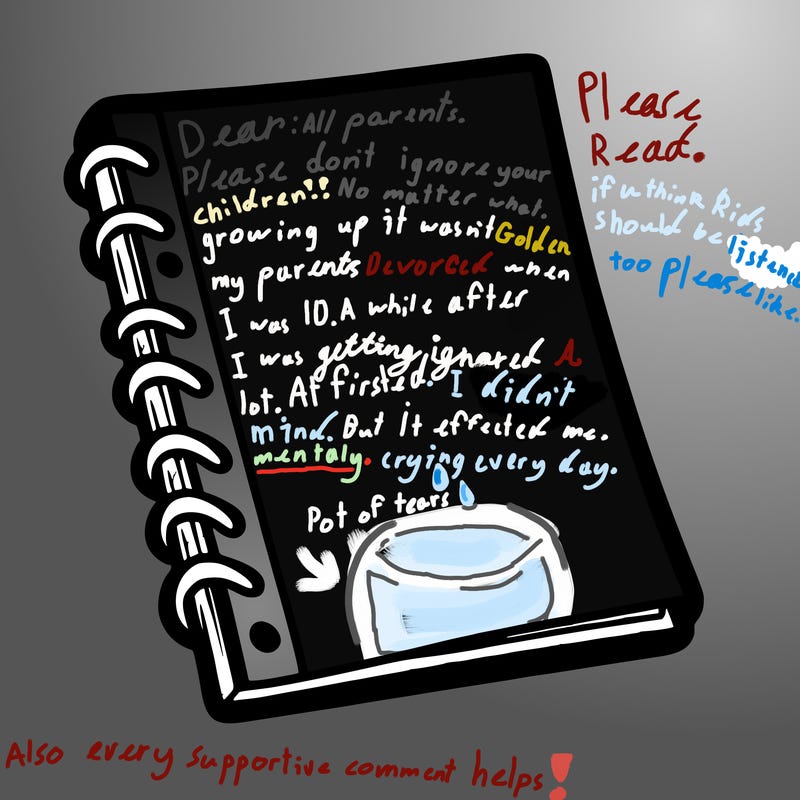 Dear: All parents.
Please don't ignore your
children!! No matter what.
growing up it wasn't Golden
my parents Devorced when
I was 10. A while after
I was getting ignored A
lot. At firsted. I didn't
mind. But It effected me.
mentaly. crying every day.
Pot of tears
Please
Read.
if u think Kids
should be listened
too please like.
Also every supportive comment helps!